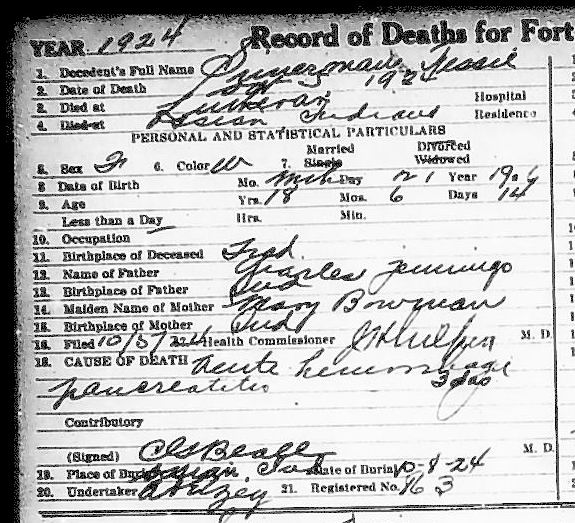 YEAR 1924 Record of Deaths for Fort
1. Decedent's Full Name Jessie
2. Date of Death Oct 5 192
3. Died at Lutheran Hospital
4. Died at Ossian Indiana Residence
PERSONAL AND STATISTICAL PARTICULARS
Married Divorced
5. Sex F 6. Color W 7. Single Widowed
8 Date of Birth Mo. Mch Day 21 Year 19
9. Age Yrs. 18 Mos. 6 Days 14
Less than a Day Hrs. Min.
10. Occupation
11. Birthplace of Deceased Ind.
12. Name of Father Charles Jennings
13. Birthplace of Father Ind
14. Maiden Name of Mother Mary Bowman
15. Birthplace of Mother Ind
16. Filed 10/5/24 Health Commissioner M. D.
18. CAUSE OF DEATH Acute hemorrhage
pancreatitis 3 das
Contributory
(Signed) CS Beall M. D.
19. Place of Burial Ossian Ind Date of Burial 10-8-24
20. Undertaker 21. Registered No. 163